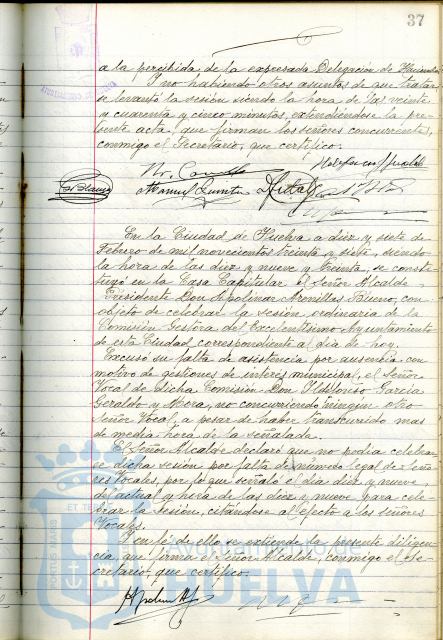 37
a la percibida de la expresada Delegación de Hacienda.
Y no habiendo otros asuntos de que tratar
se levantó la sesión siendo la hora de las veinte
y cuarenta y cinco minutos, extendiéndose la pre-
sente acta, que firman los señores concurrentes,
conmigo el Secretario, que certifico.
Manuel
En la Ciudad de Huelva a diez y siete de
Febrero de mil novecientos treinta y siete, siendo
la hora de las diez y nueve y treinta, se consti-
tuyó en la Casa Capitular el Señor Alcalde
Presidente Don Apolinar Arenillas Bueno, con
objeto de celebrar la sesión ordinaria de la
Comisión Gestora del Excelentísimo Ayuntamiento
de esta Ciudad correspondiente al día de hoy.
Excusó su falta de asistencia por ausencia con
motivo de gestiones de interés municipal, el señor
Vocal de dicha Comisión Don Ildefonso García
Geraldo y Mora, no concurriendo ningún otro
Señor Vocal, a pesar de haber transcurrido mas
de media hora de la señalada.
El Señor Alcalde declaró que no podía celebrar-
se dicha sesión por falta de número legal de Seño
res Vocales, por lo que señaló el día diez y nueve
del actual y hora de las diez y nueve para cele-
brar la sesión, citándose al efecto a los señores
Vocales.
Y en fé de ello se extiende la presente diligen-
cia, que firma el Señor Alcalde, conmigo el Se-
cretario, que certifico.
PORTUS MARIS ET TERRAE
Ayuntamiento de
HUELVA